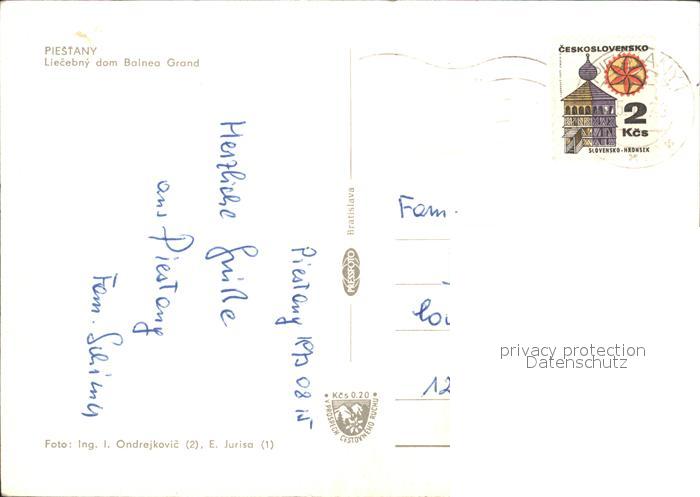 PIEŠŤANY
Liečebný dom Balnea Grand
Piestany 1973 08 15
Herzliche Grüße
aus Piestany
Fam.
Foto: Ing. I. Ondrejkovič (2), E. Jurisa (1)
Bratislava
PRESSFOTO
Kčs 0.20
V PROSPECH CESTOVNÉHO RUCHU
ČESKOSLOVENSKO
2
Kčs
SLOVENSKO-HRONSEK
Fam.
12
privacy protection
Datenschutz